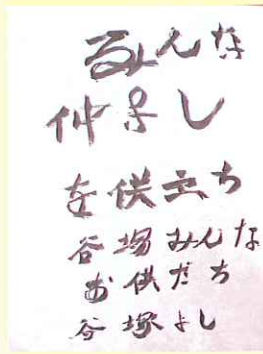 みんな
仲よし
を供立ち
谷塚みんな
お供だち
谷塚よし